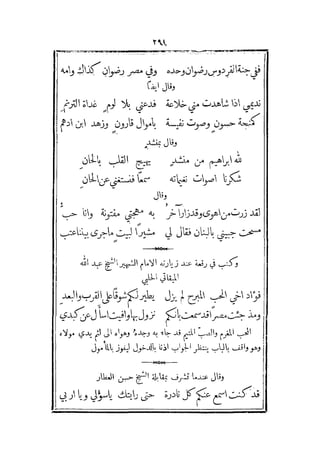 ٢٩٤
ففي جنة الفردوس رضوان وحده وفي مصر رضوان كذاك وامه
وقال ايضًا
نديمي اذا شاهدت مني خلاعة فدعني بلا لوم غداة الترنم
كمنجة حسون وصوت نفيسة باموال قارون وزهد ابن ادهم
وقال بمنشد
لله ابراهيم من منشد يهيج القلب بالحان
شكرنا اصوات نغماته سمعًا فنستغني عن الحان
وقال
لقد زرت من اهوى وقد زار آخر به مهجتي مفتونة وانا حب
مسحت جبيني بالبنان فقال لي مشيرًا لبيت ماجرى بيننا عتب
وكتب في رقعة عند زيارته الامام الشهير الشيخ عبد الله
الميقاتي الحلبي
فؤاد اخي الحب المبرح لم يزل يطير لكم شوقًا على القرب والبعد
ومذ جئت مصر اقد سمعت بانكم نزول بها وافيت اسأل عن كبدي
المحب المغرم والصب المتيم قد جاء به وجده وهواه الى لثم يدي مولاه
وهو واقف بالباب ينتظر الجواب اذنا بالدخول ليفوز بالمأمول
وقال عندما تشرف بمقابلة الشيخ حسن العطار
قد كنت اسمع عنكم كل نادرة حتى رايتك ياسؤلي ويا اربي